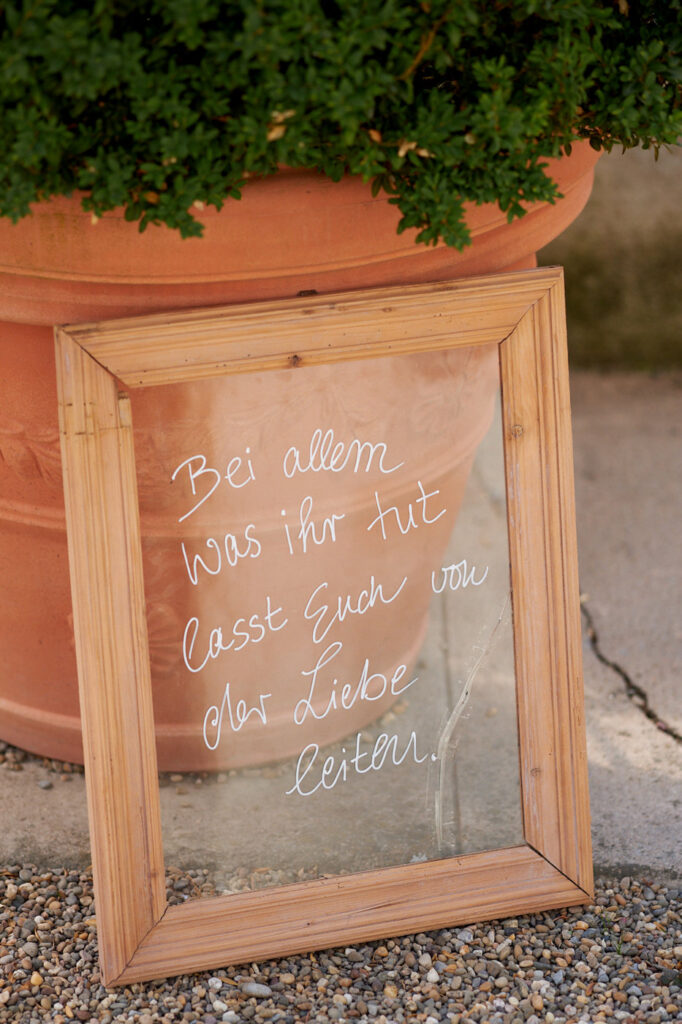 Bei allem
Was ihr tut
lasst Euch von
der Liebe
leiten.